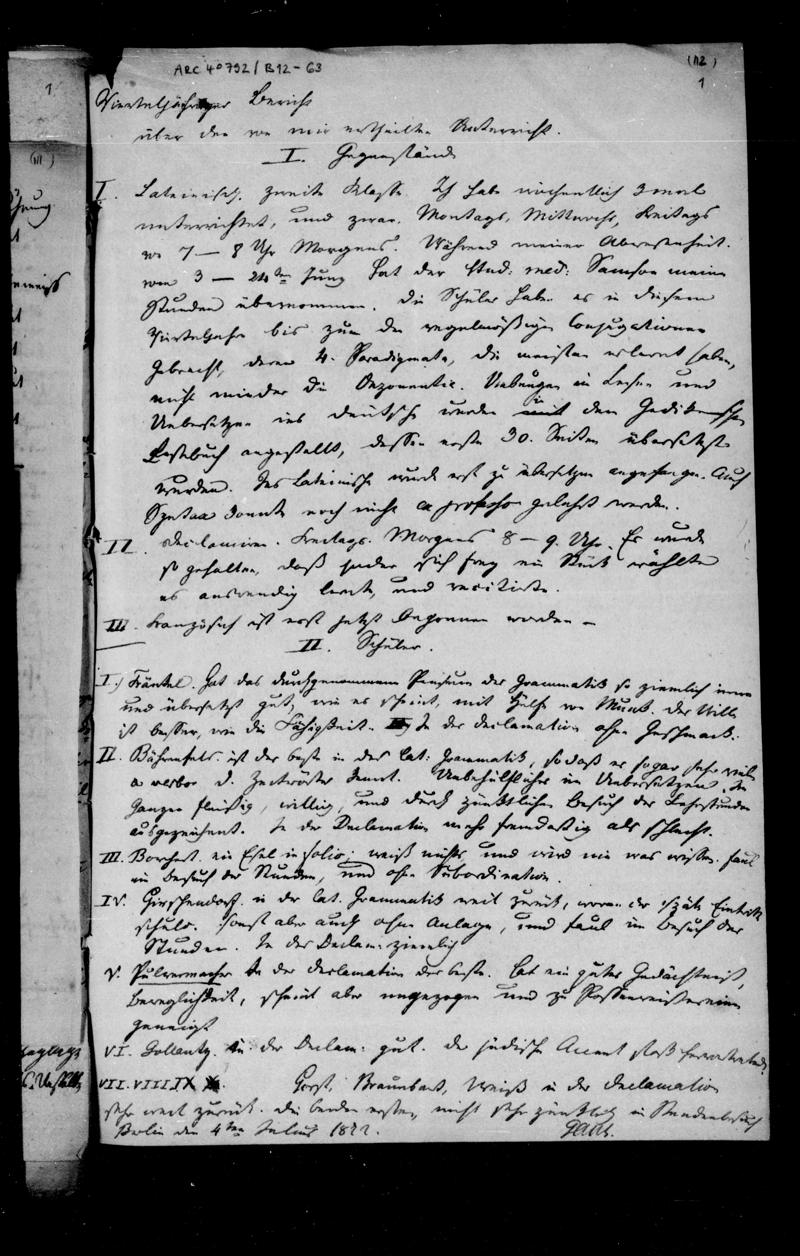 ARC 4° 792 / B12 - 63
(112)
1
Vierteljähriger Bericht
über den von mir ertheilten Unterricht.
I. Gegenstände
I. Lateinisch. zweite Klasse. Ich habe wöchentlich 3 mal
unterrichtet, und zwar Montags, Mittwochs, Freitags
von 7 – 8 Uhr Morgens. Während meiner Abwesenheit
vom 3 – 24ten Juny hat der Stud: med: Samson meine
Stunden übernommen. Die Schüler haben es in diesem
Vierteljahr bis zum den regelmäßigen Conjugationen
gebracht, deren 4 Paradigmata, die meisten erlernt haben,
nicht minder die Deponentia. Uebungen im Lesen und
Uebersetzen ins deutsche wurden in dem Gedikeschen
Lesebuch angestellt, dessen erste 30. Seiten übersetzt
wurden. Ins Lateinische wurde erst zu übersetzen angefangen. Auch
Syntax konnte noch nicht ex professo gelehrt werden.
II. Declamiren. Freitags. Morgens 8 – 9. Uhr. Es wurde
so gehalten, daß jeder sich frey ein Stück wählte
es auswendig lernte, und recitirte.
III. Französisch ist erst jetzt begonnen worden –
II. Schüler.
I.) Fränkel. Hat das durchgenommene Pensum der Grammatik so ziemlich inne
und übersetzt gut, wie es scheint, mit Hülfe von Munk. Der Wille
ist besser, wie die Fähigkeit. In der Declamation ohne Geschmack.
II. Bährenfels. ist der beste in der lat: Grammatik, so daß er sogar sehr viele
a verbo d. Zeitwörter kennt. Unbehülflicher im Uebersetzen. Im
Ganzen fleißig, willig, und durch pünktlichen Besuch der Lehrstunden
ausgezeichnet. In der Declamation mehr fremdartig als schlecht.
III. Borchert. ein Esel in folio; weiß nichts, und wird nie was wissen. faul
im Besuch der Stunden, und ohne Subordination.
IV. Hirschendorf. in der lat. Grammatik weit zurück, woran der späte Eintritt
schuld. sonst aber auch ohne Anlage, und faul im Besuch der
Stunden. In der Declam: ziemlich
V. Pulvermacher In der Declamation der beste. Hat ein gutes Gedächtniß,
Beweglichkeit, scheint aber ungezogen und zu Possenreissereien
geneigt
VI. Gollantz. In der Declam: gut. der jüdische Accent stark hervortretend.
VII. VIII. IX. Horst, Braunhart, Weiß in der Declamation
sehr weit zurück. die beiden ersten nicht sehr pünktlich im Stundenbesuch
Berlin den 4ten Julius 1822. Gans.